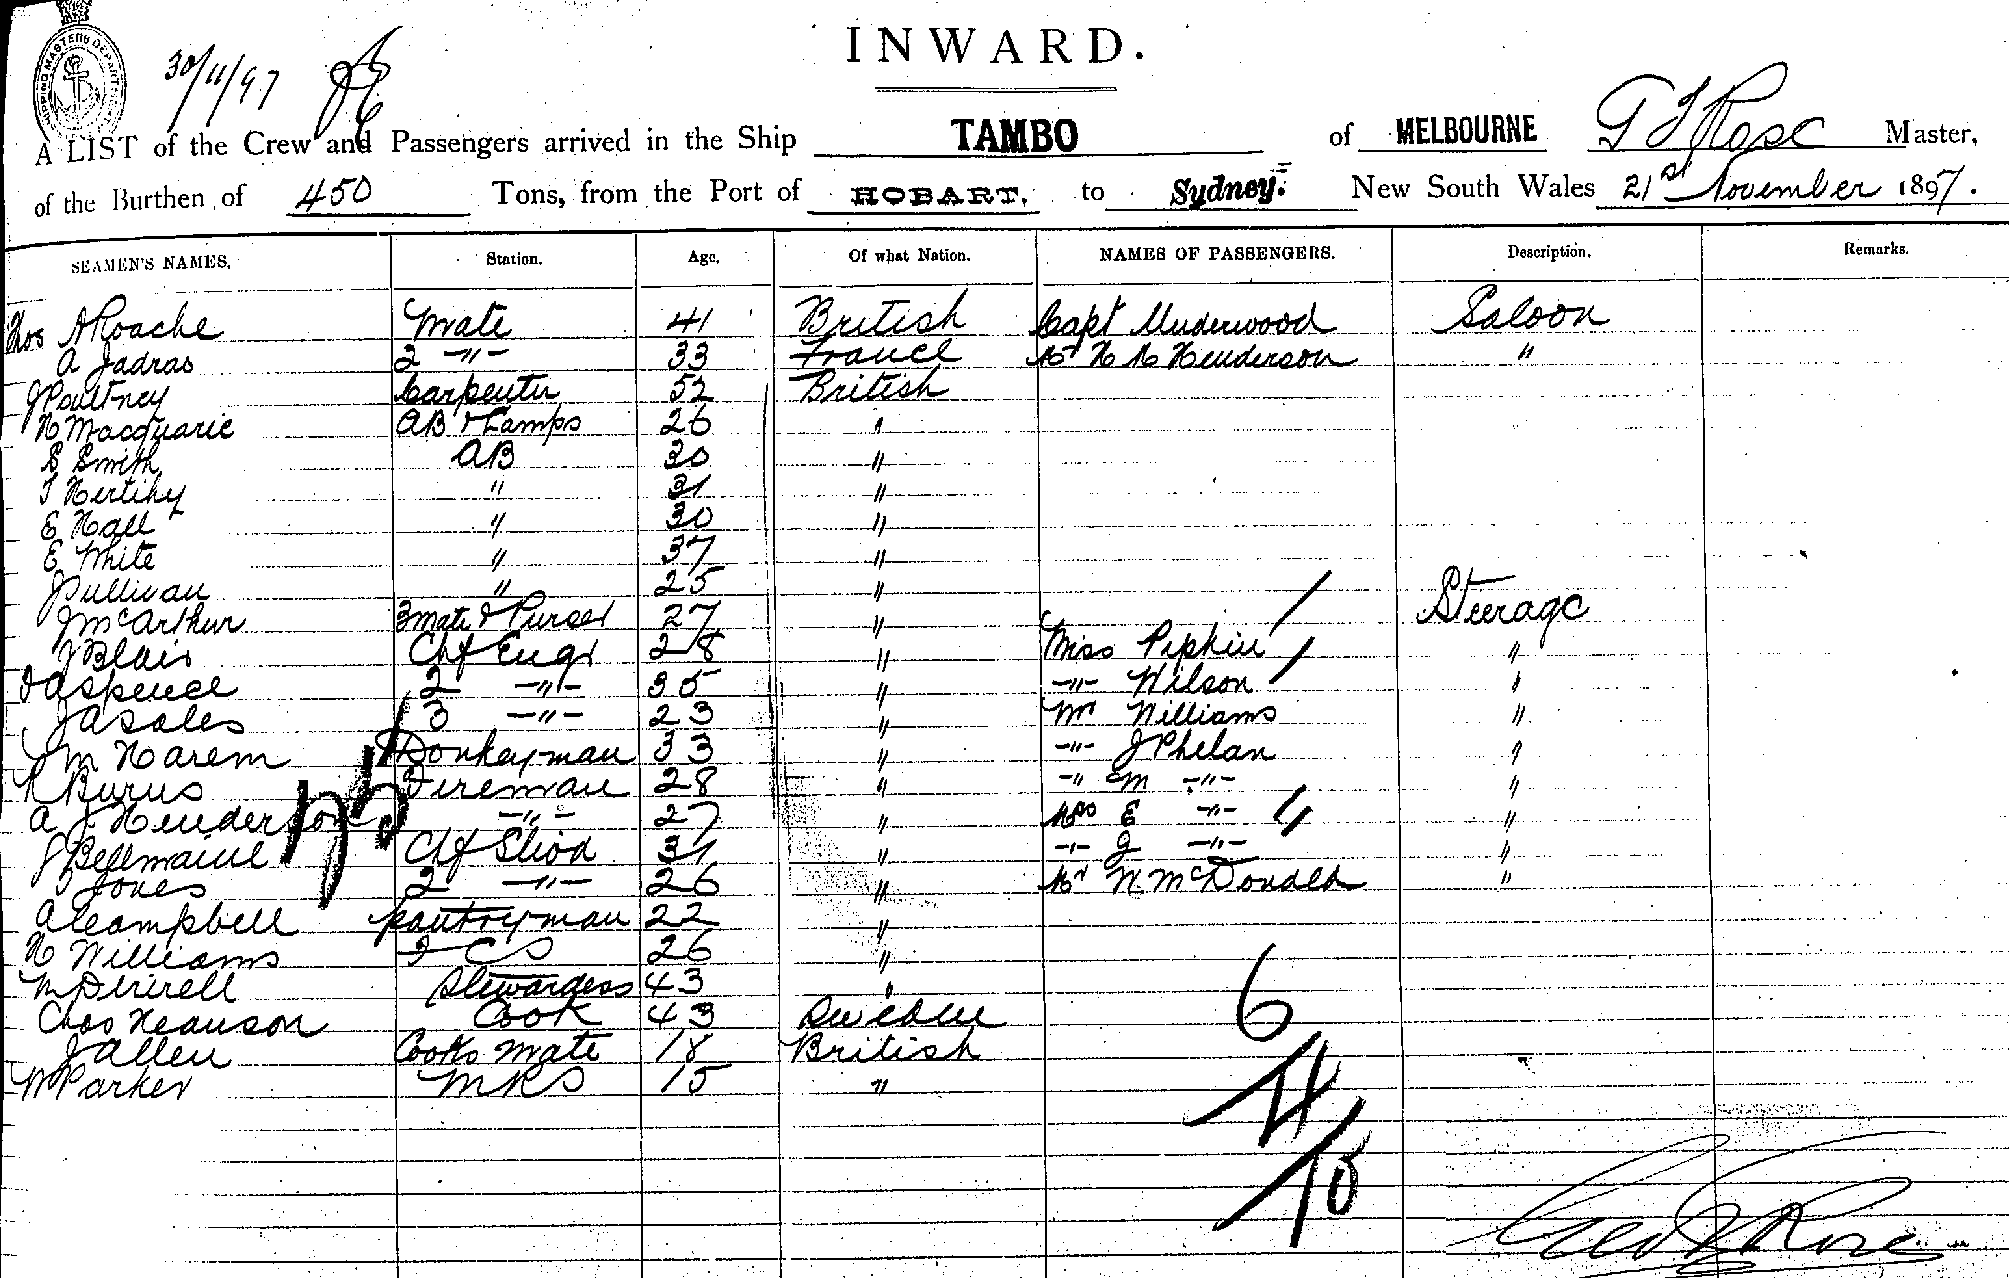 SHIPPING MASTERS DEPARTMENT
30/11/97
INWARD.
A LIST of the Crew and Passengers arrived in the Ship TAMBO of MELBOURNE G T Rose Master,
of the Burthen of 450 Tons, from the Port of HOBART. to Sydney. New South Wales 21st November 1897.
SEAMEN'S NAMES. Station. Age. Of what Nation. NAMES OF PASSENGERS. Description. Remarks.
Thos A Roache Mate 41 British Capt Underwood Saloon
A Jadras 2 -"- 33 France Mr H A Henderson "
J Poultney Carpenter 52 British
H Macquarie AB & Lamps 26 "
S Smith AB 30 "
T Hertihy " 31 "
E Hall " 30 "
E White " 37 "
J Sullivan " 25 " Steerage
J McArthur 3 mate & Purser 27 "
J Blair Chf Engr 28 " Miss Pipkin "
J A Spence 2 -"- 35 " -"- Wilson "
J A Soles 3 -"- 23 " Mr Williams "
M Harem Donkeyman 33 " -"- J Phelan "
R Burns Fireman 28 " -"- M -"- "
A J Henderson -"- 27 " Mrs E -"- "
J Bellmaine Chf Stwd 31 " -"- J -"- "
Jones 2 -"- 26 " Mr W McDonald "
A Campbell Pantryman 22 "
H Williams F C S 26 "
M Stewardess 43 "
Chas Heanson Cook 43 Sweden
J Allen Cooks Mate 18 British
W Parker MRS 15 "
6
4
10
Geo T Rose